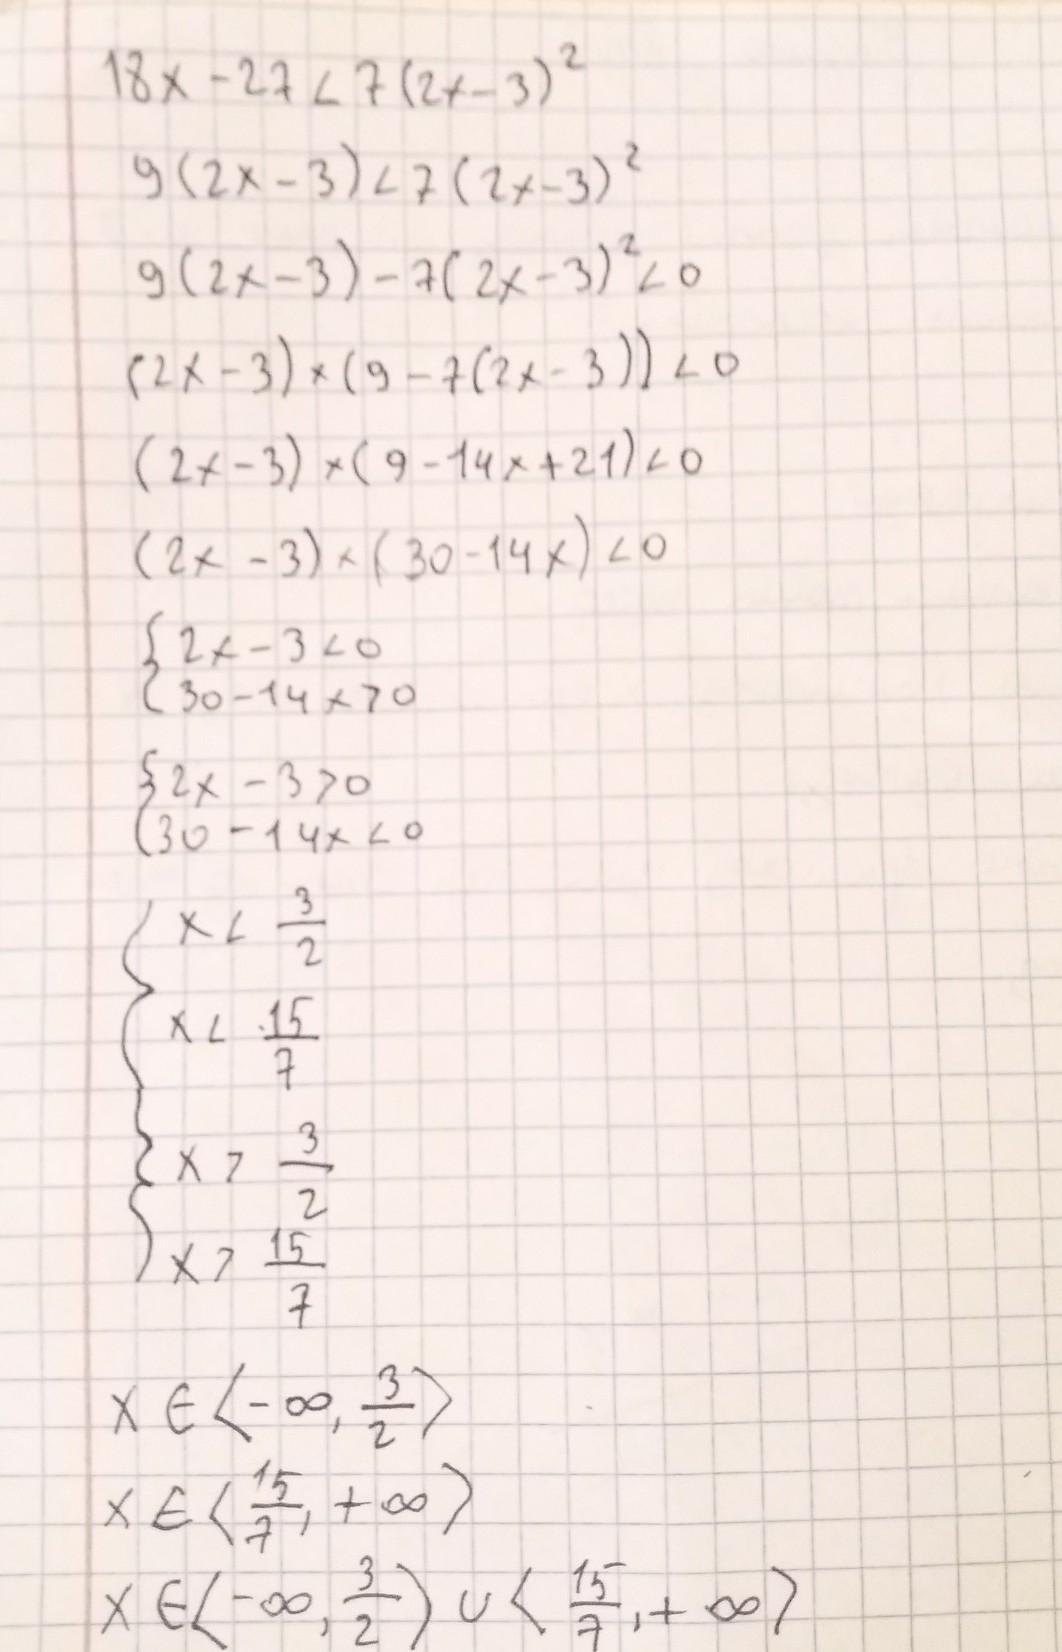 18x - 27 < 7(2x - 3)²
9(2x - 3) < 7(2x - 3)²
9(2x - 3) - 7(2x - 3)² < 0
(2x - 3) × (9 - 7(2x - 3)) < 0
(2x - 3) × (9 - 14x + 21) < 0
(2x - 3) × (30 - 14x) < 0
{ 2x - 3 < 0
30 - 14x > 0
{ 2x - 3 > 0
30 - 14x < 0
{ x < 3/2
x < 15/7
{ x > 3/2
x > 15/7
x ∈ ⟨-∞, 3/2⟩
x ∈ ⟨15/7, +∞⟩
x ∈ ⟨-∞, 3/2⟩ ∪ ⟨15/7, +∞⟩